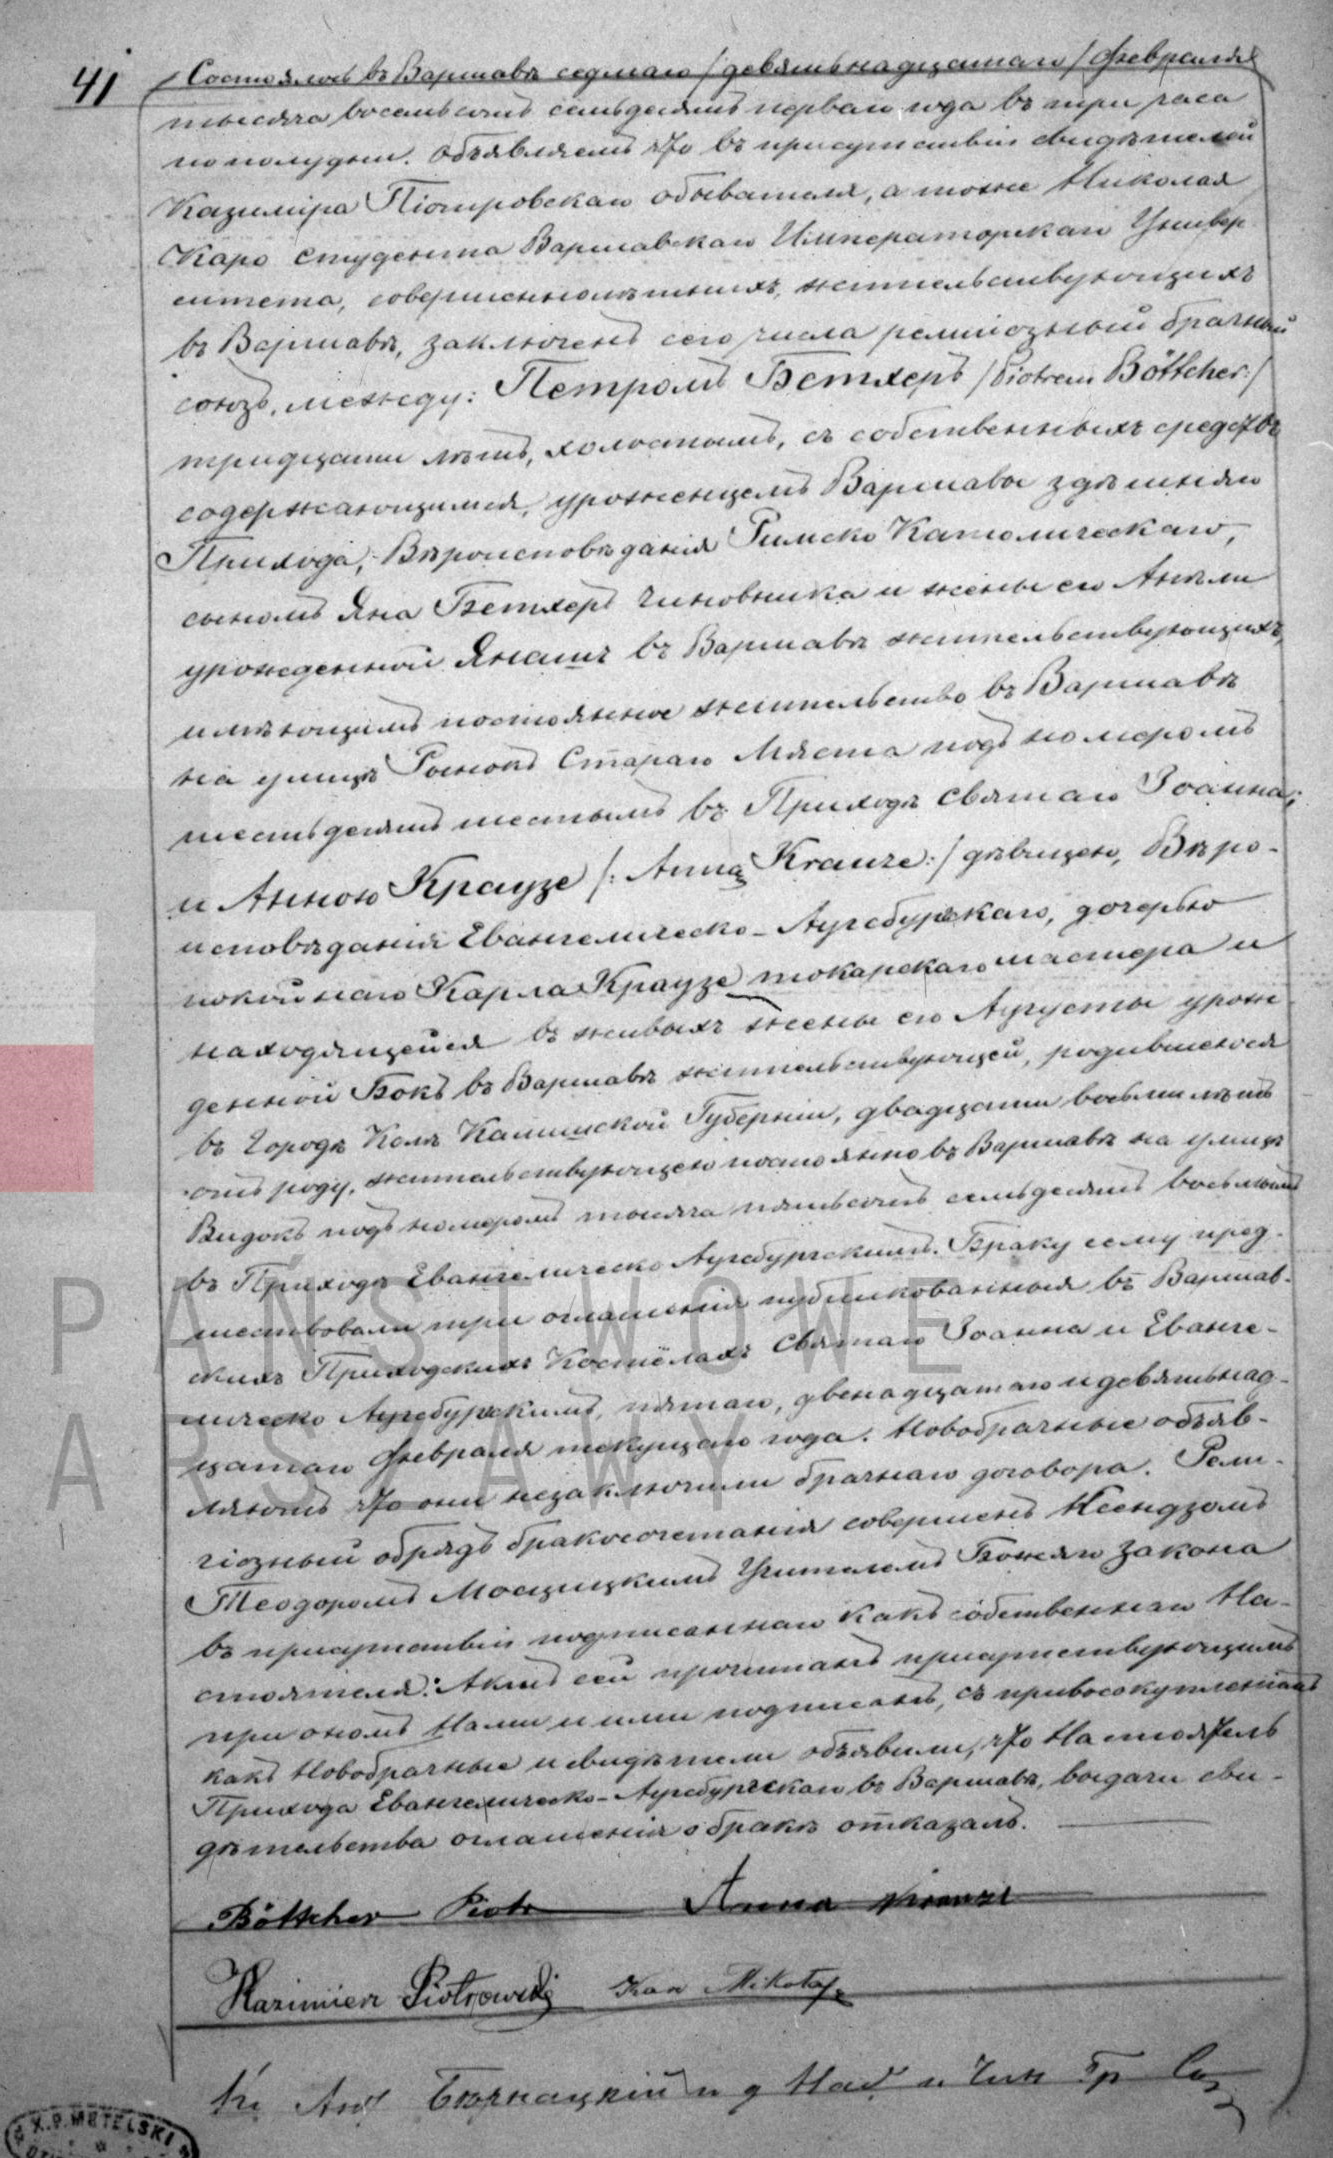 41
Состоялось въ Варшавѣ седмаго /девятьнадцатаго/ Февраля
тысяча восемьсотъ семьдесятъ перваго года въ три часа
по полудни. Объявляемъ что въ присутствіи свидѣтелей
Казиміра Піотровскаго обывателя, а тоже Николая
Каро студента Варшавскаго Императорскаго Универ
ситета, совершеннолѣтнихъ, жительствующихъ
въ Варшавѣ, заключенъ сего числа религіозный брачный
союзъ, между: Петромъ Бетхеръ /Piotrem Böttcher:/
тридцати лѣтъ, холостымъ, съ собственныхъ средствъ
содержающимся, уроженцемъ Варшавы здѣшняго
Прихода, Вѣроисповѣданія Римско Католическаго,
сыномъ Яна Бетхеръ чиновника и жены его Анели
урожденной Янашъ въ Варшавѣ жительствующихъ,
имѣющимъ постоянное жительство въ Варшавѣ
на улицѣ Рынокъ Стараго Мяста подъ номеромъ
шестьдесятъ шестымъ въ Приходѣ Святаго Іоанна;
и Анною Краузе /: Anną Krauze:/ дѣвицею, Вѣро-
исповѣданія Евангелическо-Аугсбурскаго, дочерью
покойнаго Карла Краузе токарскаго мастера и
находящейся въ живыхъ жены его Аугусты урож
денной Бокъ въ Варшавѣ жительствующей, родившеюся
въ Городѣ Колѣ Калишской Губерніи, двадцати восьми лѣтъ
отъ роду, жительствующею постоянно въ Варшавѣ на улицѣ
Видокъ подъ номеромъ тысяча пятьсотъ семьдесятъ восьмымъ
въ Приходѣ Евангелическо Аугсбургскимъ. Браку сему пред-
шествовали три оглашенія публикованныя въ Варшав-
скихъ Приходскихъ Костёлахъ Святаго Іоанна и Еванге-
лическо Аугсбурскимъ, пятаго, двенадцатаго и девятьнад-
цатаго Февраля текущаго года. Новобрачные объяв-
ляютъ что они незаключили брачнаго договора. Рели-
гіозный обрядъ бракосочетанія совершенъ Ксендзомъ
Теодоромъ Мосцицкимъ Учителемъ Божяго Закона
въ присутствіи подписаннаго какъ собственнаго На-
стоятеля. Актъ сей прочитанъ присутствующимъ
при ономъ Нами и ими подписанъ, съ привосокупленіемъ
какъ Новобрачные и свидѣтели объявили, что Настоятель
Прихода Евангелическо-Аугсбургскаго въ Варшавѣ, выдачи сви-
дѣтельства оглашенія о бракѣ отказалъ.
Böttcher Piotr Anna Krauze
Kazimierz Piotrowski Karo Mikołaj
Кс Анд Бярнацкій и д Наст и Чин Гр Со
X.P. METELSKI
PAŃSTWOWE
ARSZAWY